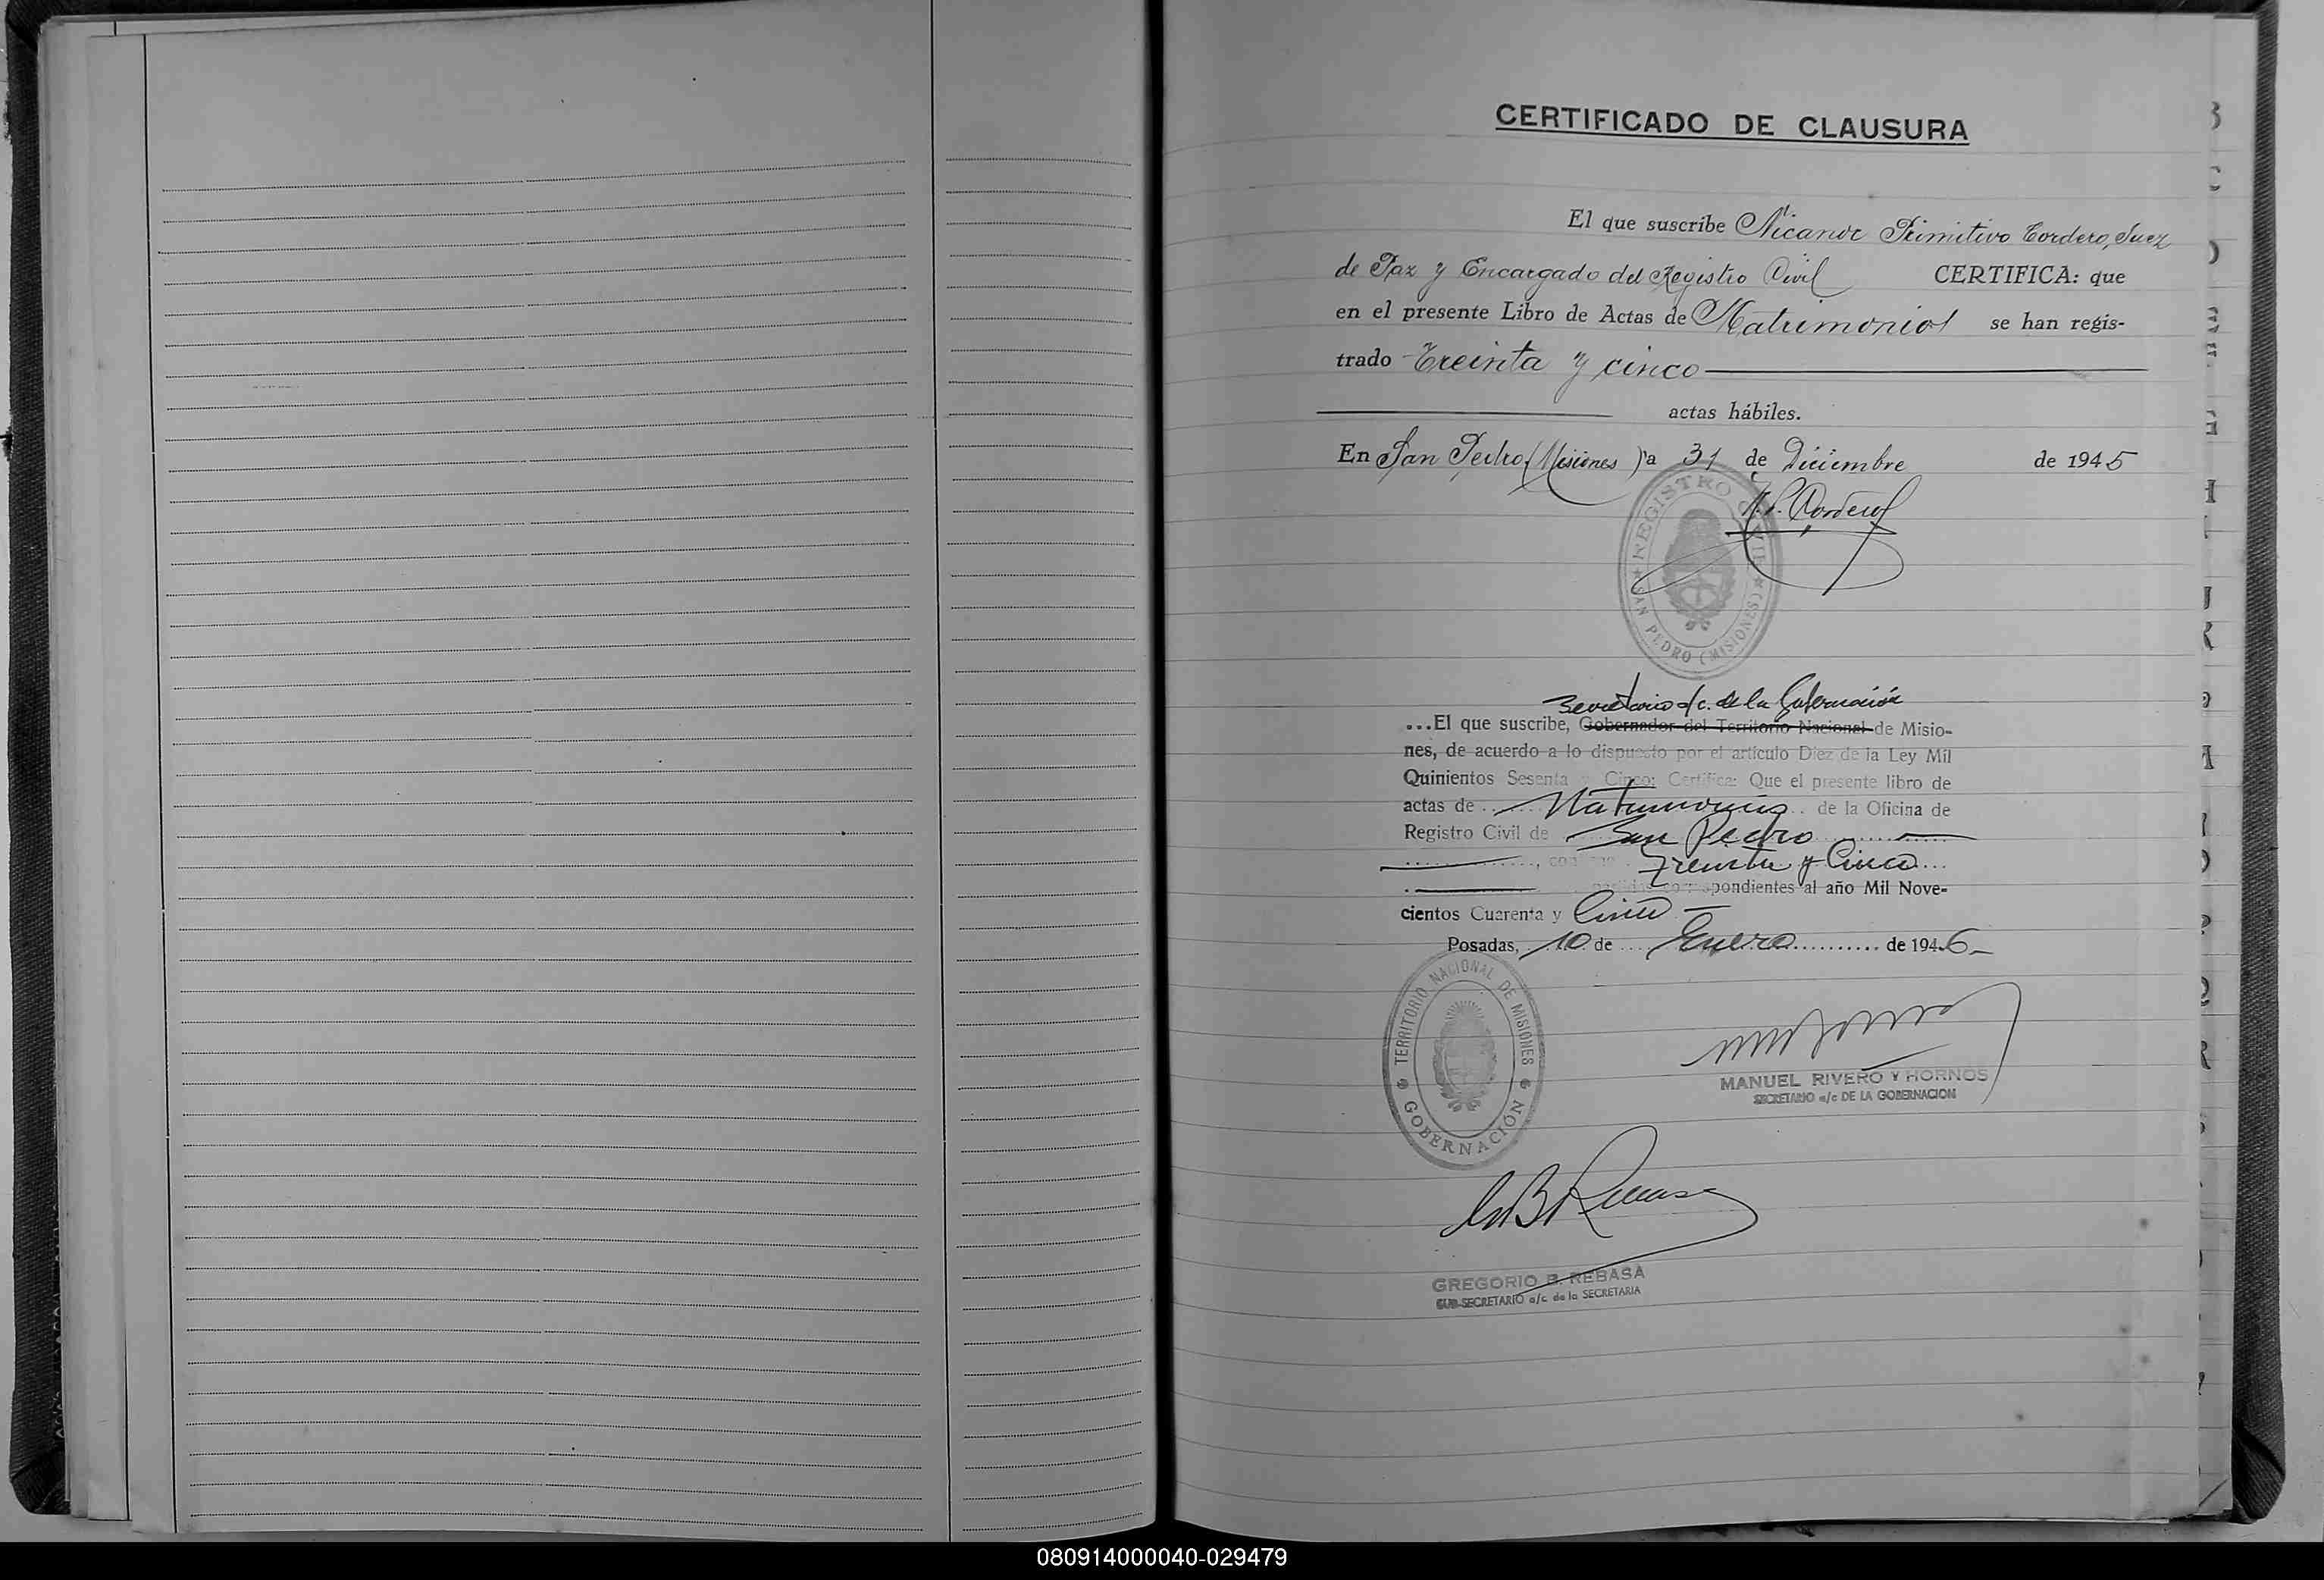 CERTIFICADO DE CLAUSURA
El que suscribe Nicanor Primitivo Cordero, Juez
de Paz y Encargado del Registro Civil CERTIFICA: que
en el presente Libro de Actas de Matrimonios se han regis-
trado Treinta y cinco
actas hábiles.
En San Pedro (Misiones) a 31 de Diciembre de 1945
N. P. Cordero
REGISTRO CIVIL
SAN PEDRO (MISIONES)
Secretario a/c. de la Gobernación
...El que suscribe, Gobernador del Territorio Nacional de Misio-
nes, de acuerdo a lo dispuesto por el artículo Diez de la Ley Mil
Quinientos Sesenta y Cinco; Certifica: Que el presente libro de
actas de Matrimonios de la Oficina de
Registro Civil de San Pedro
Treinta y Cinco
correspondientes al año Mil Nove-
cientos Cuarenta y Cinco
Posadas, 10 de Enero de 1946
TERRITORIO NACIONAL DE MISIONES
GOBERNACIÓN
MANUEL RIVERO Y HORNOS
SECRETARIO a/c DE LA GOBERNACION
GREGORIO B. REBASA
SUB-SECRETARIO a/c de la SECRETARIA
080914000040-029479